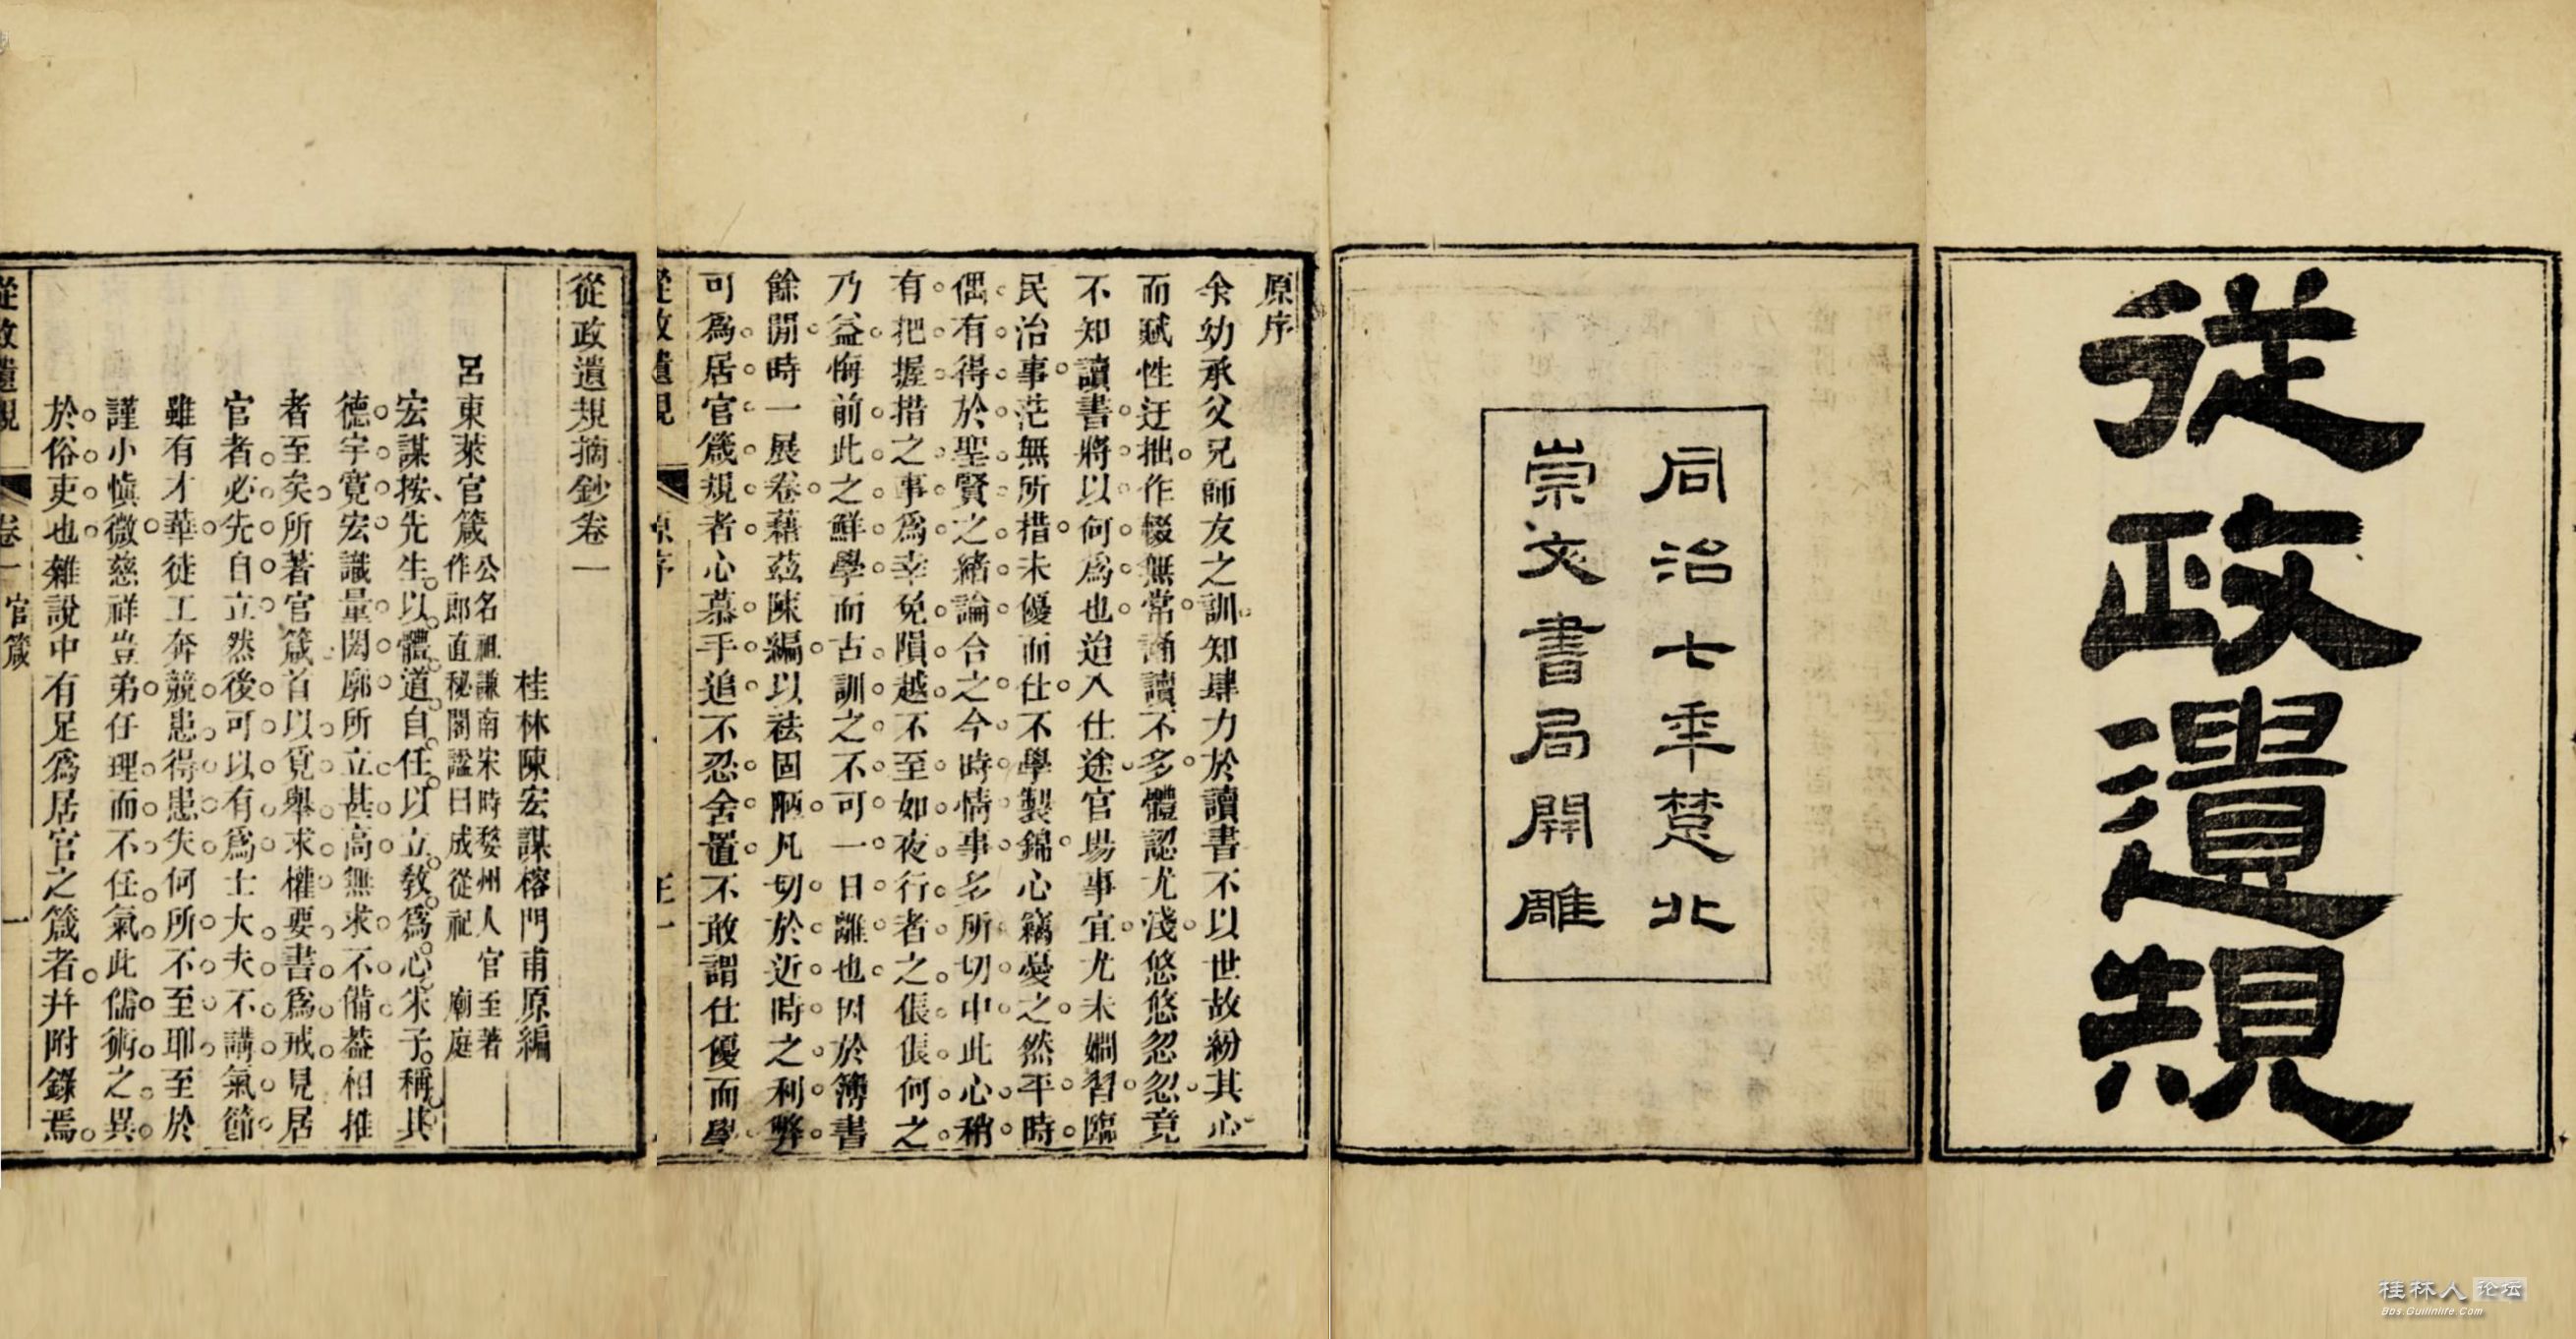 從政遺規
同治七年楚北
崇文書局開雕
原序
余幼承父兄師友之訓知肆力於讀書不以世故紛其心
而賦性迂拙作輟無常誦讀不多體認尤淺悠悠忽忽竟
不知讀書將以何爲也迨入仕途官場事宜尤未嫺習臨
民治事茫無所措未優而仕不學製錦心竊憂之然平時
偶有得於聖賢之緒論合之今時情事多所切中此心稍
有把握措之事爲幸免隕越不至如夜行者之倀倀何之
乃益悔前此之鮮學而古訓之不可一日離也因於簿書
餘閒時一展卷藉茲陳編以祛固陋凡切於近時之利弊
可爲居官箴規者心慕手追不忍舍置不敢謂仕優而學
從政遺規
原序
從政遺規摘鈔卷一
桂林陳宏謀榕門甫原編
呂東萊官箴公名祖謙南宋時婺州人官至著
作郎直秘閣諡曰成從祀廟庭
宏謀按先生以體道自任以立敎爲心朱子稱其
德宇寛宏識量閎廓所立甚高無求不備葢相推
者至矣所著官箴首以覓舉求權要書爲戒見居
官者必先自立然後可以有爲士大夫不講氣節
雖有才華徒工奔競患得患失何所不至耶至於
謹小愼微慈祥豈弟任理而不任氣此儒術之異
於俗吏也雜說中有足爲居官之箴者并附錄焉
從政遺規
卷一 官箴
一
桂林人论坛
Bbs.Guilinlife.Com